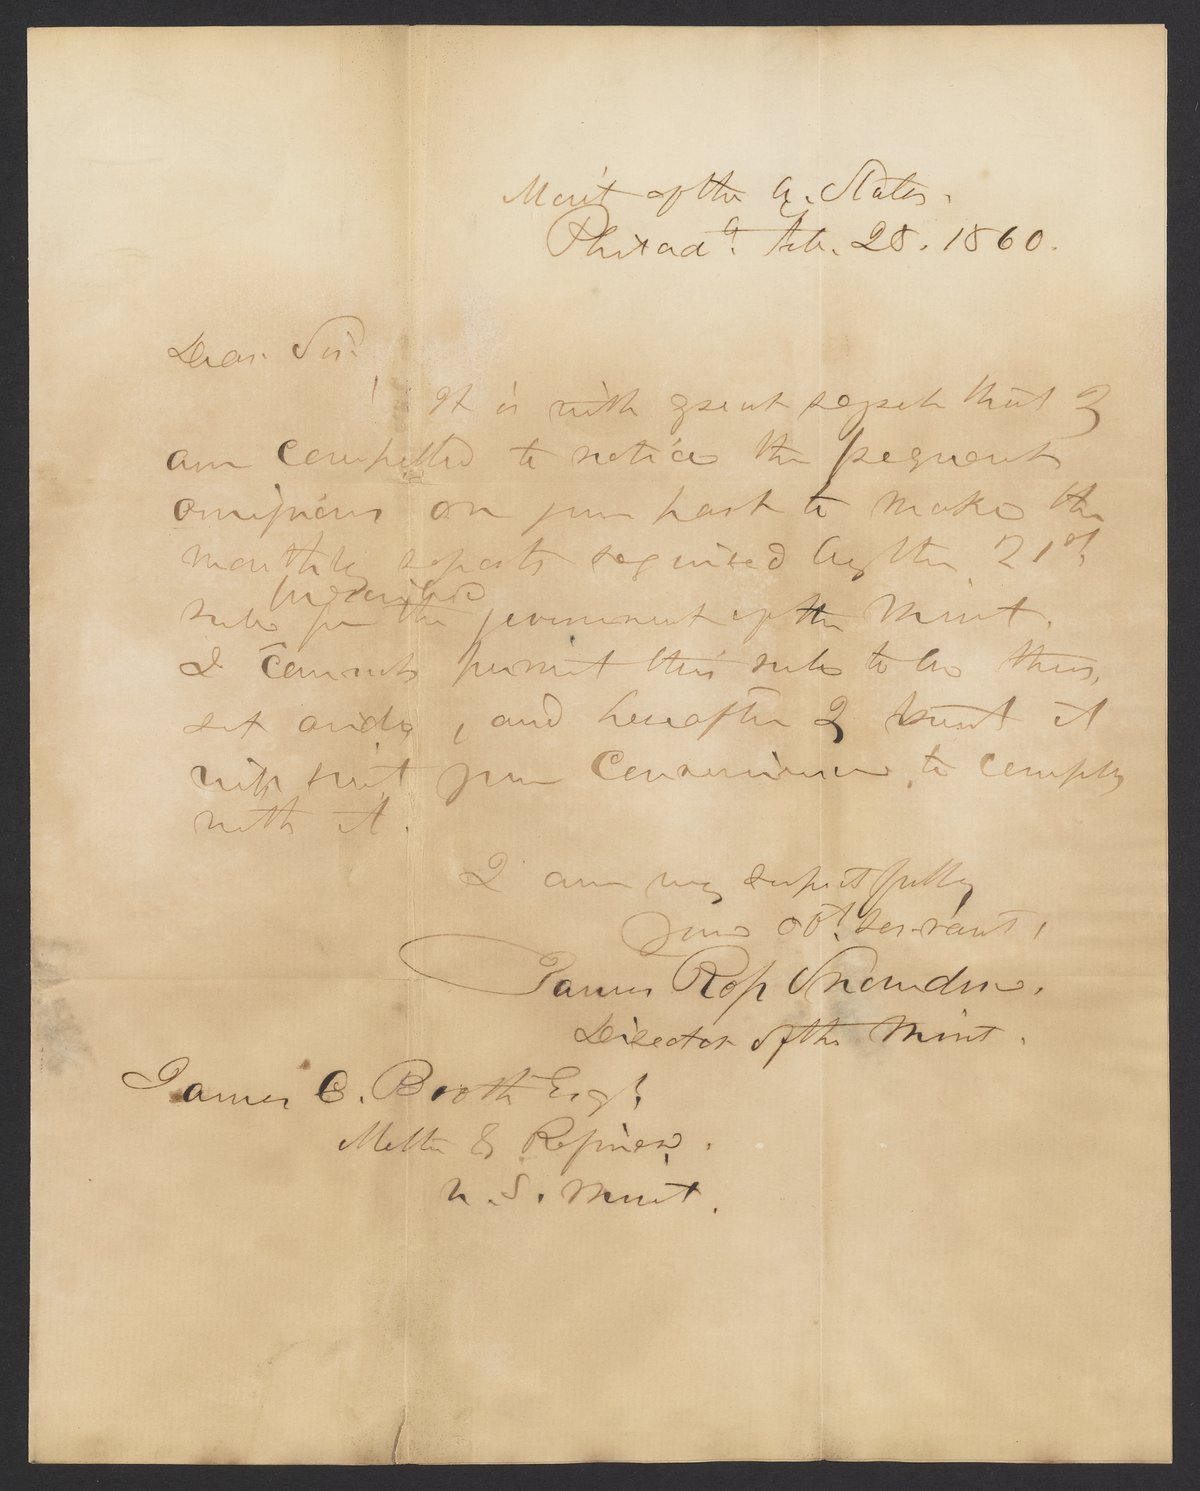 Mint of the U. States.
Philad^a. Feb. 28. 1860.
Dear Sir.
It is with great regret that I
am compelled to notice the frequent
omissions on your part to make the
monthly reports required by the 21st
prescribed
rule for the government of the Mint.
I cannot permit this rule to be thus
set aside, and hereafter I trust it
will suit your convenience to comply
with it.
I am very respectfully
Your obt. servant,
James Ross Snowden.
Director of the Mint.
James C. Booth Esq.
Melter & Refiner.
U. S. Mint.